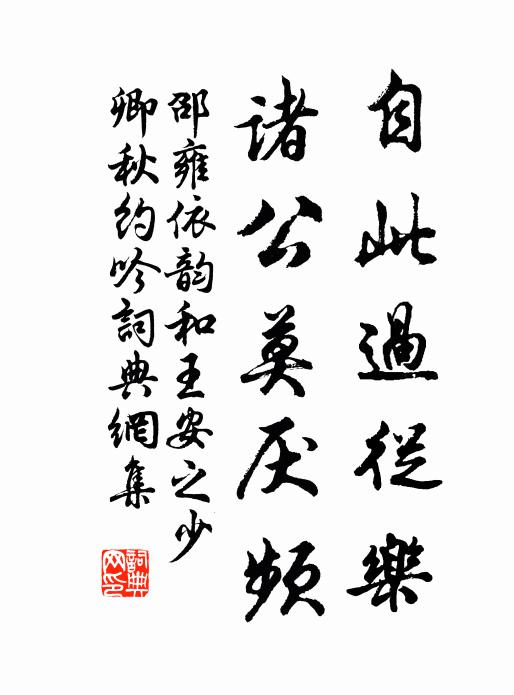 自此過從樂
諸公莫厌頻
邵雍依韵和王安之少
卿秋約吟詞典網集
詞典
网印